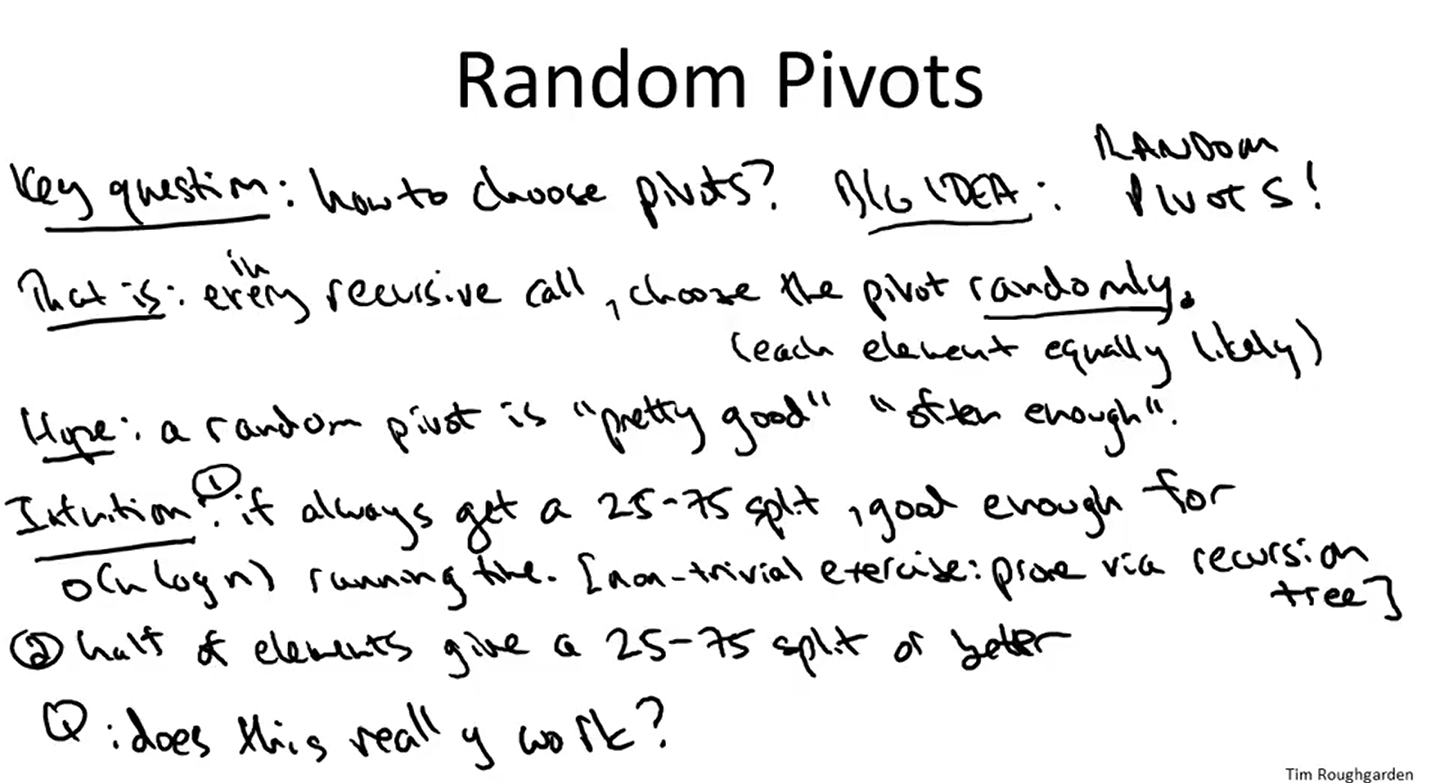 Random Pivots
Key question: how to choose pivots? BIG IDEA: RANDOM PIVOTS!
That is: in every recursive call, choose the pivot randomly.
(each element equally likely)
Hope: a random pivot is "pretty good" "often enough".
Intuition: ① if always get a 25-75 split, good enough for
O(n log n) running time. [non-trivial exercise: prove via recursion tree]
② half of elements give a 25-75 split or better
Q: does this really work?
Tim Roughgarden